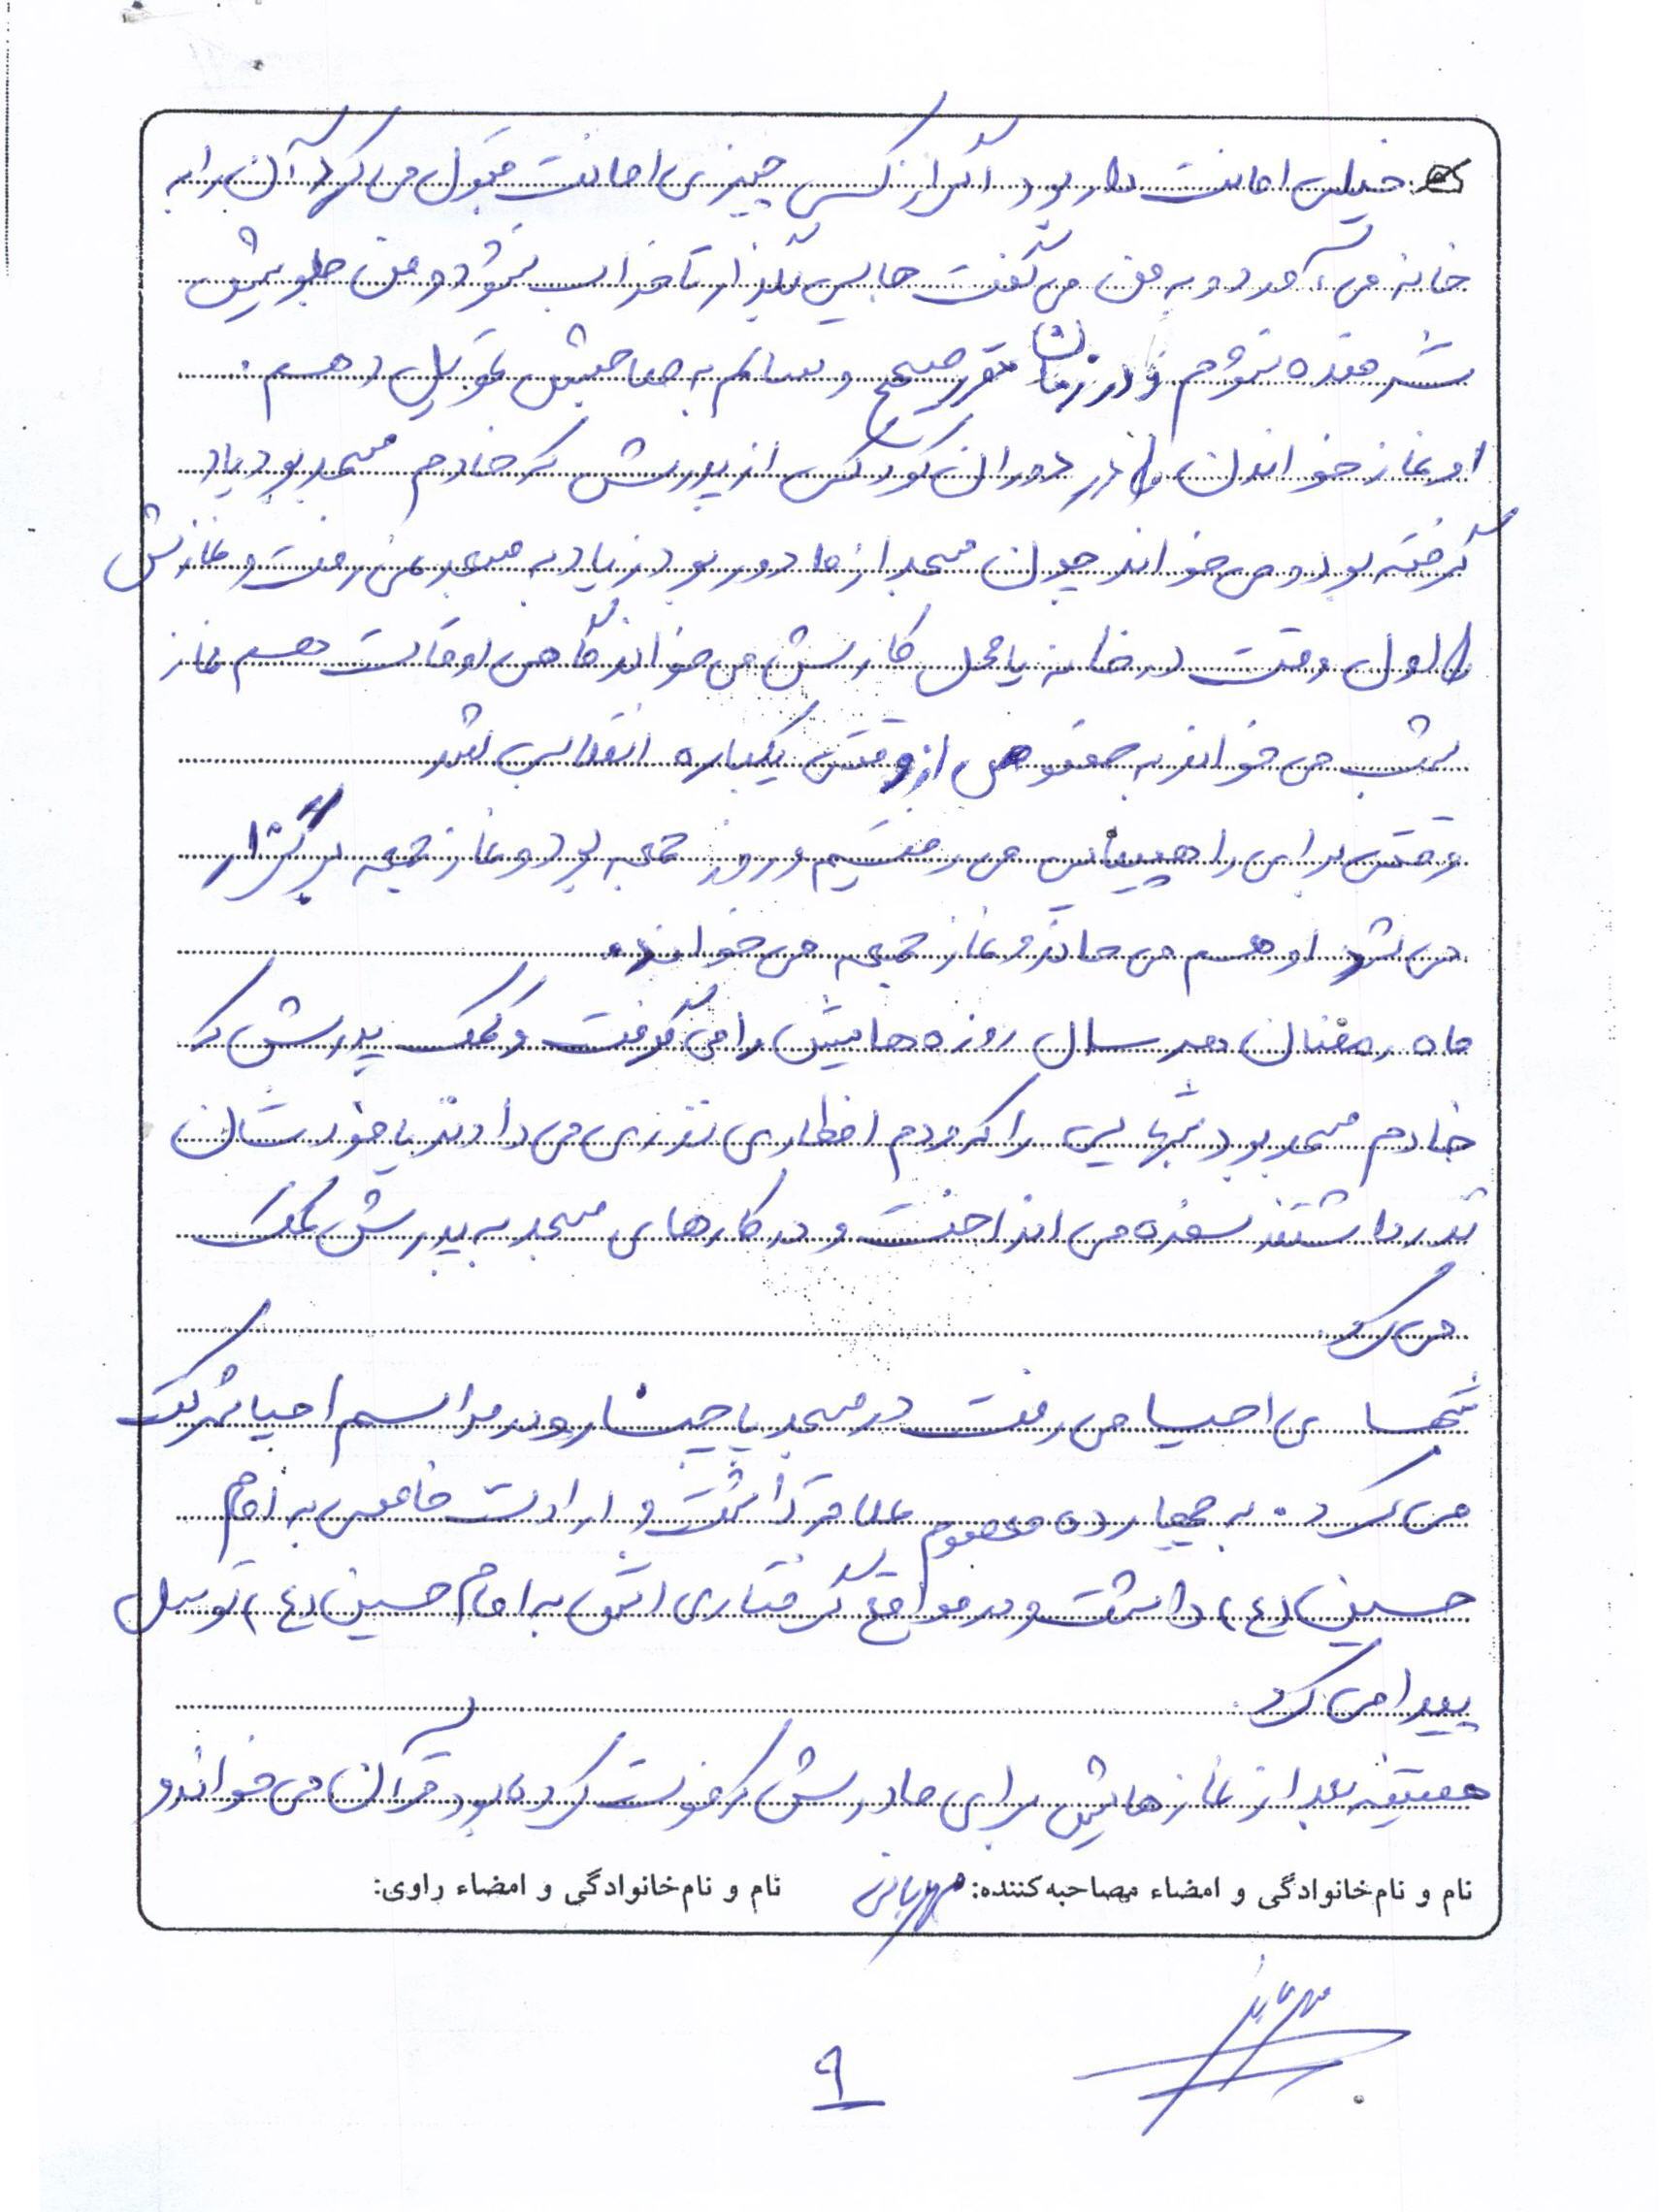 خیلی امانت دار بود. اگر از کسی چیزی امانت قبول می کرد آن را به
خانه می آورد و به من می گفت جایی بگذار تا خراب نشود و من جلویش
شرمنده نشوم و در زمان مقرر صحیح و سالم به صاحبش تحویل دهم.
او نماز خواندن را در دوران کودکی از پدرش که خادم مسجد بود یاد
گرفته بود و می خواند چون مسجد از ما دور بود زیاد به مسجد نمی رفت و نمازش
را اول وقت در خانه یا محل کارش می خواند گاهی اوقات هم نماز
شب می خواند به خصوص از وقتی یکباره انقلابی شد
وقتی برای راهپیمایی می رفتیم و روز جمعه بود و نماز جمعه برگزار
می شد او هم می ماند و نماز جمعه می خواند.
ماه رمضان هر سال روزه هایش را می گرفت و کمک پدرش که
خادم مسجد بود شبهایی را که مردم افطاری نذری می دادند یا خودشان
نذر داشتند سفره می انداخت و در کارهای مسجد به پدرش کمک
می کرد.
شبهای احیا می رفت در مسجد پاچنار و در مراسم احیا شرکت
می کرد. به چهارده معصوم علاقه داشت و ارادت خاصی به امام
حسین (ع) داشت و در مواقع گرفتاری اش به امام حسین (ع) توسل
پیدا می کرد.
همیشه بعد از نمازهایش برای مادرش که فوت کرده بود قرآن می خواند و
نام و نام خانوادگی و امضاء مصاحبه کننده: مهربانی نام و نام خانوادگی و امضاء راوی:
۹